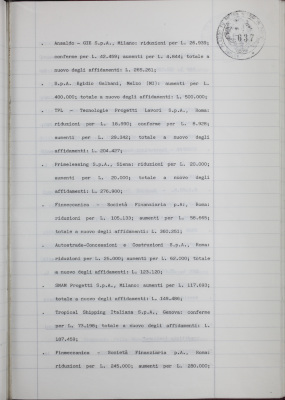 637
- Ansaldo - GIE S.p.A., Milano: riduzioni per L.
conferme per L. 42.959; aumenti per L. 4.644; totale a
nuovo degli affidamenti: L. 265.261;
- S.p.A. Egidio Galbani, Melzo (MI): aumenti per L.
400.000; totale a nuovo degli affidamenti: L. 500.000;
- TPL - Tecnologie Progetti Lavori S.p.A., Roma:
riduzioni per L. 16.950; conferme per L.
aumenti per L. 26.342; totale a nuovo degli
affidamenti: L. 204.407;
- Primeleasing S.p.A., Siena: riduzioni per L. 20.000;
aumenti per L. 20.000; totale a nuovo degli
affidamenti: L. 270.900;
- Finmeccanica - Società Finanziaria p.A., Roma:
riduzioni per L. 105.123; aumenti per L.
totale a nuovo degli affidamenti: L. 260.261;
- Autostrade-Concessioni e Costruzioni S.p.A., Roma:
riduzioni per L. 25.000; aumenti per L. 62.000; totale
a nuovo degli affidamenti: L. 123.120;
- SNAM Progetti S.p.A., Milano: aumenti per L. 117.693;
totale a nuovo degli affidamenti: L.
- Tropical Shipping Italiana S.p.A., Genova: conferme
per L. 73.198; totale a nuovo degli affidamenti: L.
197.458;
- Finmeccanica - Società Finanziaria p.A., Roma:
riduzioni per L. 245.000; aumenti per L. 280.000;